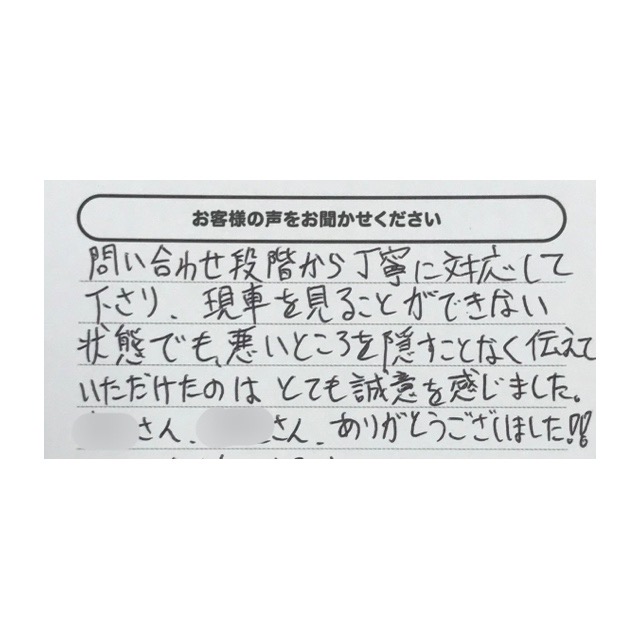 お客様の声をお聞かせください
問い合わせ段階から丁寧に対応して
下さり、現車を見ることができない
状態でも、悪いところを隠すことなく伝えて
いただけたのは とても誠意を感じました。
さん、さん、ありがとうございました!!